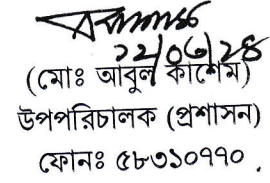 ১২/০৩/২৪
(মোঃ আবুল কাশেম)
উপপরিচালক (প্রশাসন)
ফোনঃ ৫৮৩১০৭৭০.